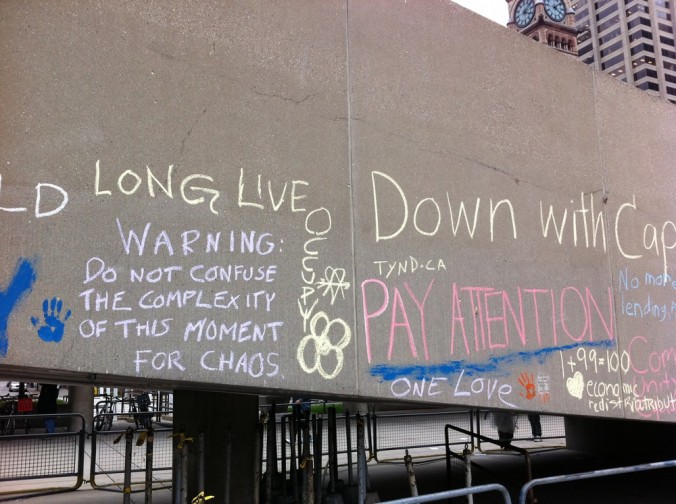 LD
LONG LIVE
OCCUPY
WARNING:
DO NOT CONFUSE
THE COMPLEXITY
OF THIS MOMENT
FOR CHAOS.
Down with Cap
TYND.CA
PAY ATTENTION
ONE LOVE
No more
lending
1+99=100
economic